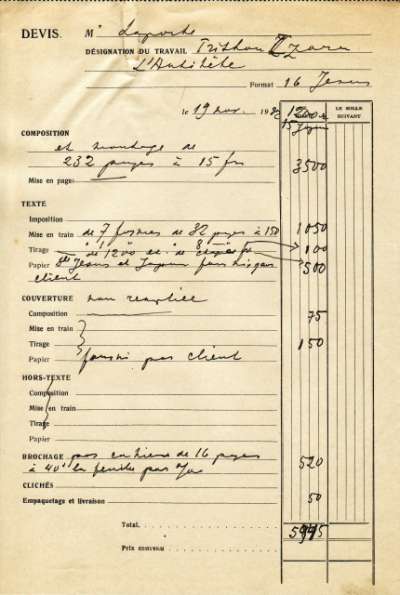 DEVIS. Mr Laporte
DÉSIGNATION DU TRAVAIL Tristan Tzara
L'Antitête
Format 16 Jesus
le 19 nov. 193
1200
LE MILLE SUIVANT
15 Japon
COMPOSITION
et montage de
232 pages à 15 frs 3500
Mise en pages
TEXTE
Imposition
Mise en train de 7 formes de 32 pages à 150 1050
Tirage de 1200 ex. de 100
Papier Jesus et Japon fournis par 500
client
COUVERTURE non rempliée
Composition 75
Mise en train
Tirage 150
Papier fourni par client
HORS-TEXTE
Composition
Mise en train
Tirage
Papier
BROCHAGE par cahiers de 16 pages 520
à 40 la feuille
CLICHÉS
Empaquetage et livraison 50
Total.
Prix convenu